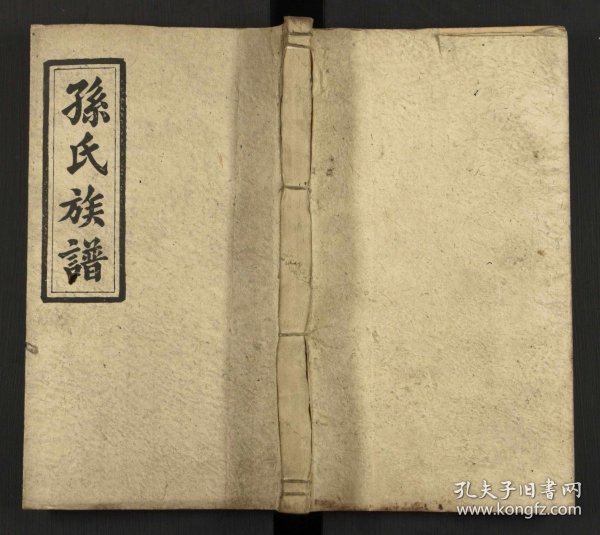 孫氏族譜
孔夫子旧书网
www.kongfz.com